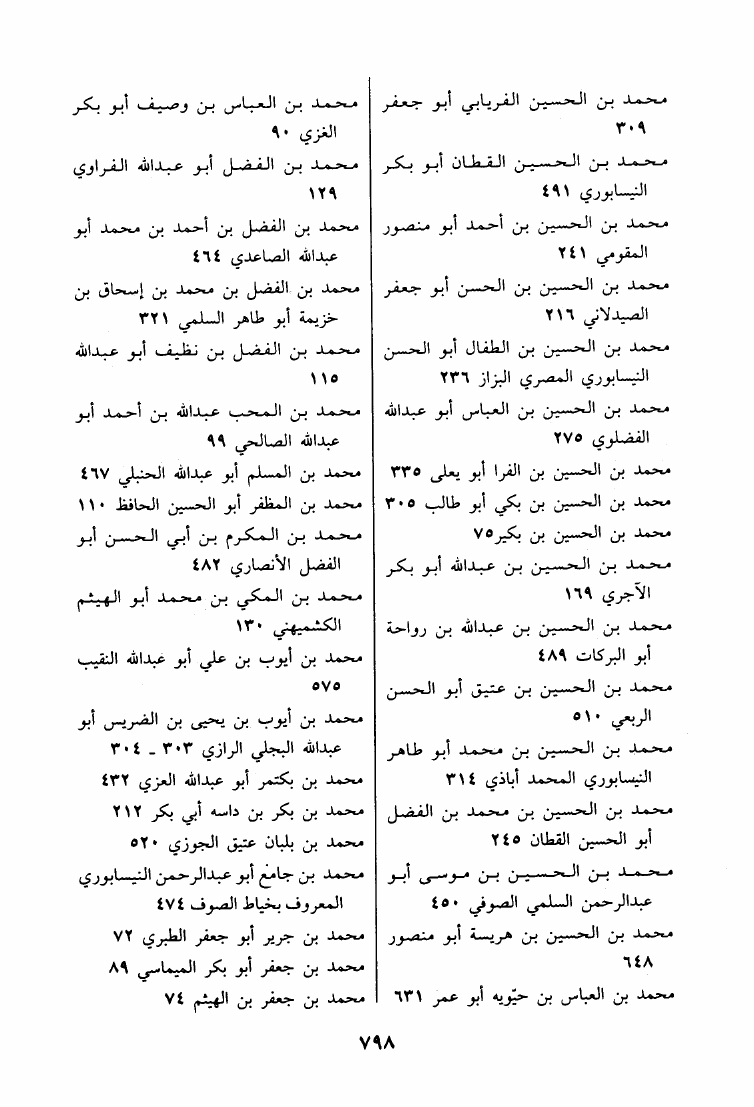 محمد بن الحسين الفريابي أبو جعفر
٣٠٩
محمد بن الحسين القطان أبو بكر
النيسابوري ٤٩١
محمد بن الحسين بن أحمد أبو منصور
المقومي ٢٤١
محمد بن الحسين بن الحسن أبو جعفر
الصيدلاني ٢١٦
محمد بن الحسين بن الطفال أبو الحسن
النيسابوري المصري البزاز ٢٣٦
محمد بن الحسين بن العباس أبو عبدالله
الفضلوي ٢٧٥
محمد بن الحسين بن الفرا أبو يعلى ٣٣٥
محمد بن الحسين بن بكي أبو طالب ٣٠٥
محمد بن الحسين بن بكير٧٥
محمد بن الحسين بن عبدالله أبو بكر
الآجري ١٦٩
محمد بن الحسين بن عبدالله بن رواحة
أبو البركات ٤٨٩
محمد بن الحسين بن عتيق أبو الحسن
الربعي ٥١٠
محمد بن الحسين بن محمد أبو طاهر
النيسابوري المحمد أباذي ٣١٤
محمد بن الحسين بن محمد بن الفضل
أبو الحسين القطان ٢٤٥
محمد بن الحسين بن موسى أبو
عبدالرحمن السلمي الصوفي ٤٥٠
محمد بن الحسين بن هريسة أبو منصور
٦٤٨
محمد بن العباس بن حيّويه أبو عمر ٦٣١
محمد بن العباس بن وصيف أبو بكر
الغزي ٩٠
محمد بن الفضل أبو عبدالله الفراوي
١٢٩
محمد بن الفضل بن أحمد بن محمد أبو
عبدالله الصاعدي ٤٦٤
محمد بن الفضل بن محمد بن إسحاق بن
خزيمة أبو طاهر السلمي ٣٢١
محمد بن الفضل بن نظيف أبو عبدالله
١١٥
محمد بن المحب عبدالله بن أحمد أبو
عبدالله الصالحي ٩٩
محمد بن المسلم أبو عبدالله الحنبلي ٤٦٧
محمد بن المظفر أبو الحسين الحافظ ١١٠
محمد بن المكرم بن أبي الحسن أبو
الفضل الأنصاري ٤٨٢
محمد بن المكي بن محمد أبو الهيثم
الكشميهني ١٣٠
محمد بن أيوب بن علي أبو عبدالله النقيب
٥٧٥
محمد بن أيوب بن يحيى بن الضريس أبو
عبدالله البجلي الرازي ٣٠٣ ـ ٣٠٤
محمد بن بكتمر أبو عبدالله العزي ٤٣٢
محمد بن بكر بن داسه أبي بكر ٢١٢
محمد بن بلبان عتيق الجوزي ٥٢٠
محمد بن جامع أبو عبدالرحمن النيسابوري
المعروف بخياط الصوف ٤٧٤
محمد بن جرير أبو جعفر الطبري ٧٢
محمد بن جعفر أبو بكر الميماسي ٨٩
محمد بن جعفر بن الهيثم ٧٤
٧٩٨